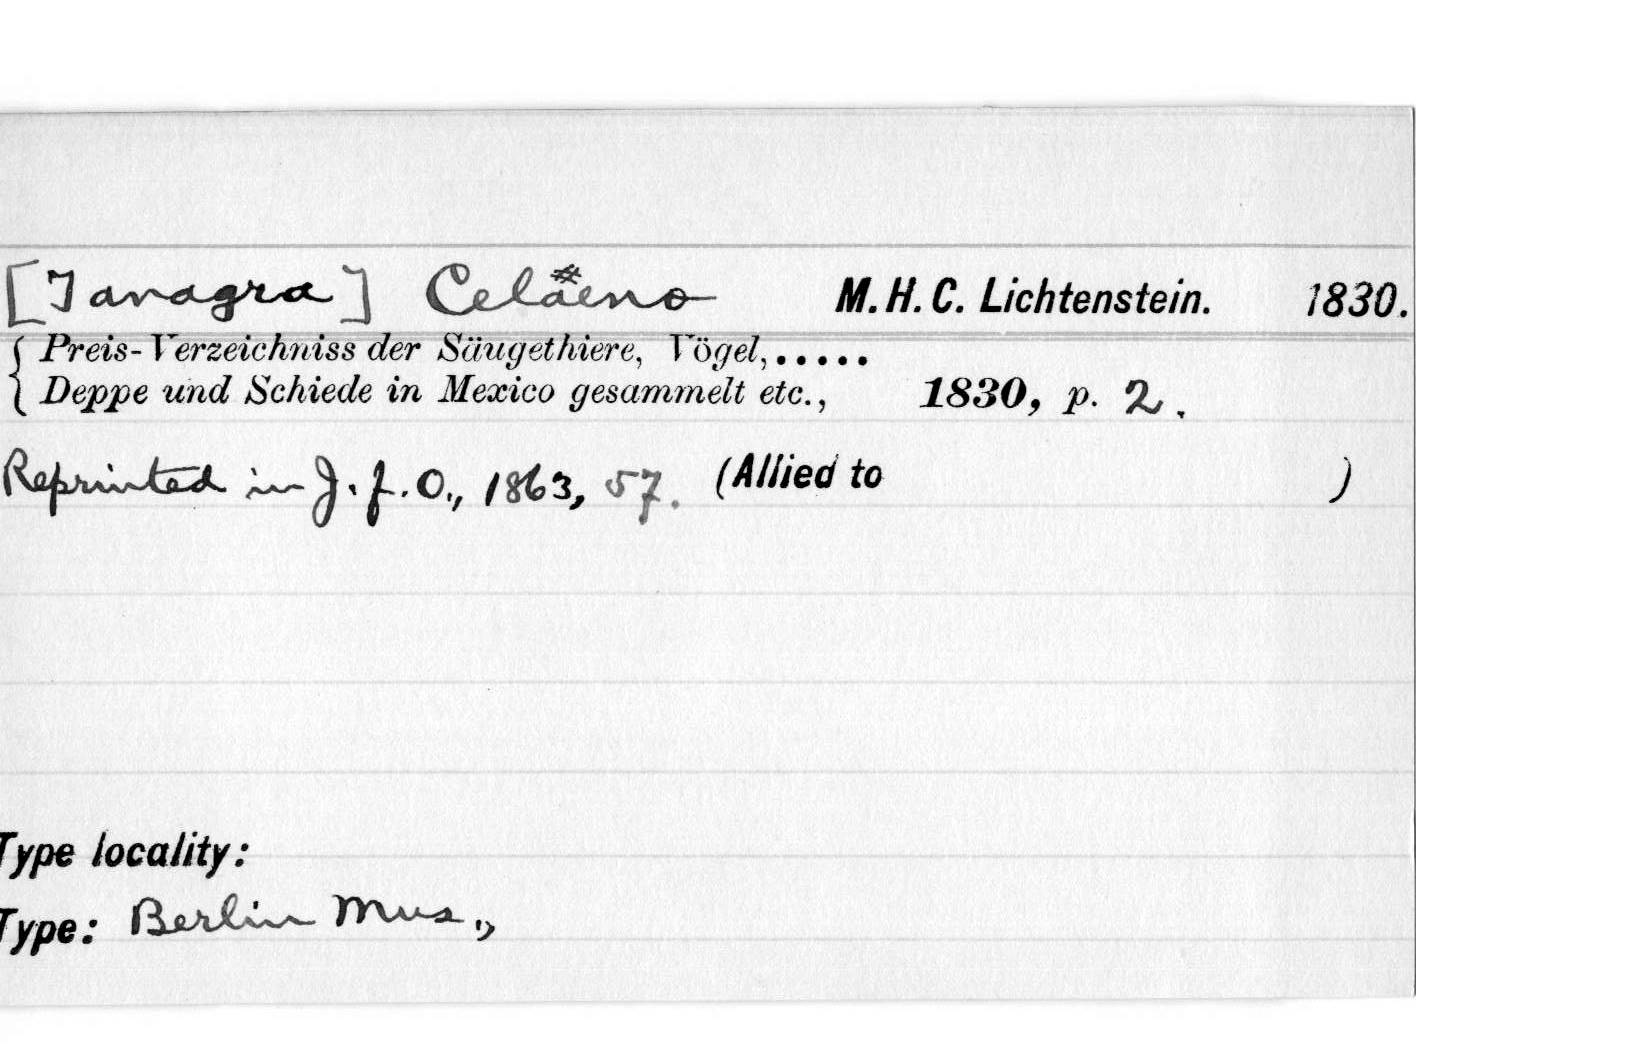 [Tanagra] Celäeno M. H. C. Lichtenstein. 1830.
Preis-Verzeichniss der Säugethiere, Vögel, . . . . .
Deppe und Schiede in Mexico gesammelt etc., 1830, p. 2.
Reprinted in J. f. O., 1863, 57. (Allied to )
Type locality:
Type: Berlin Mus.,